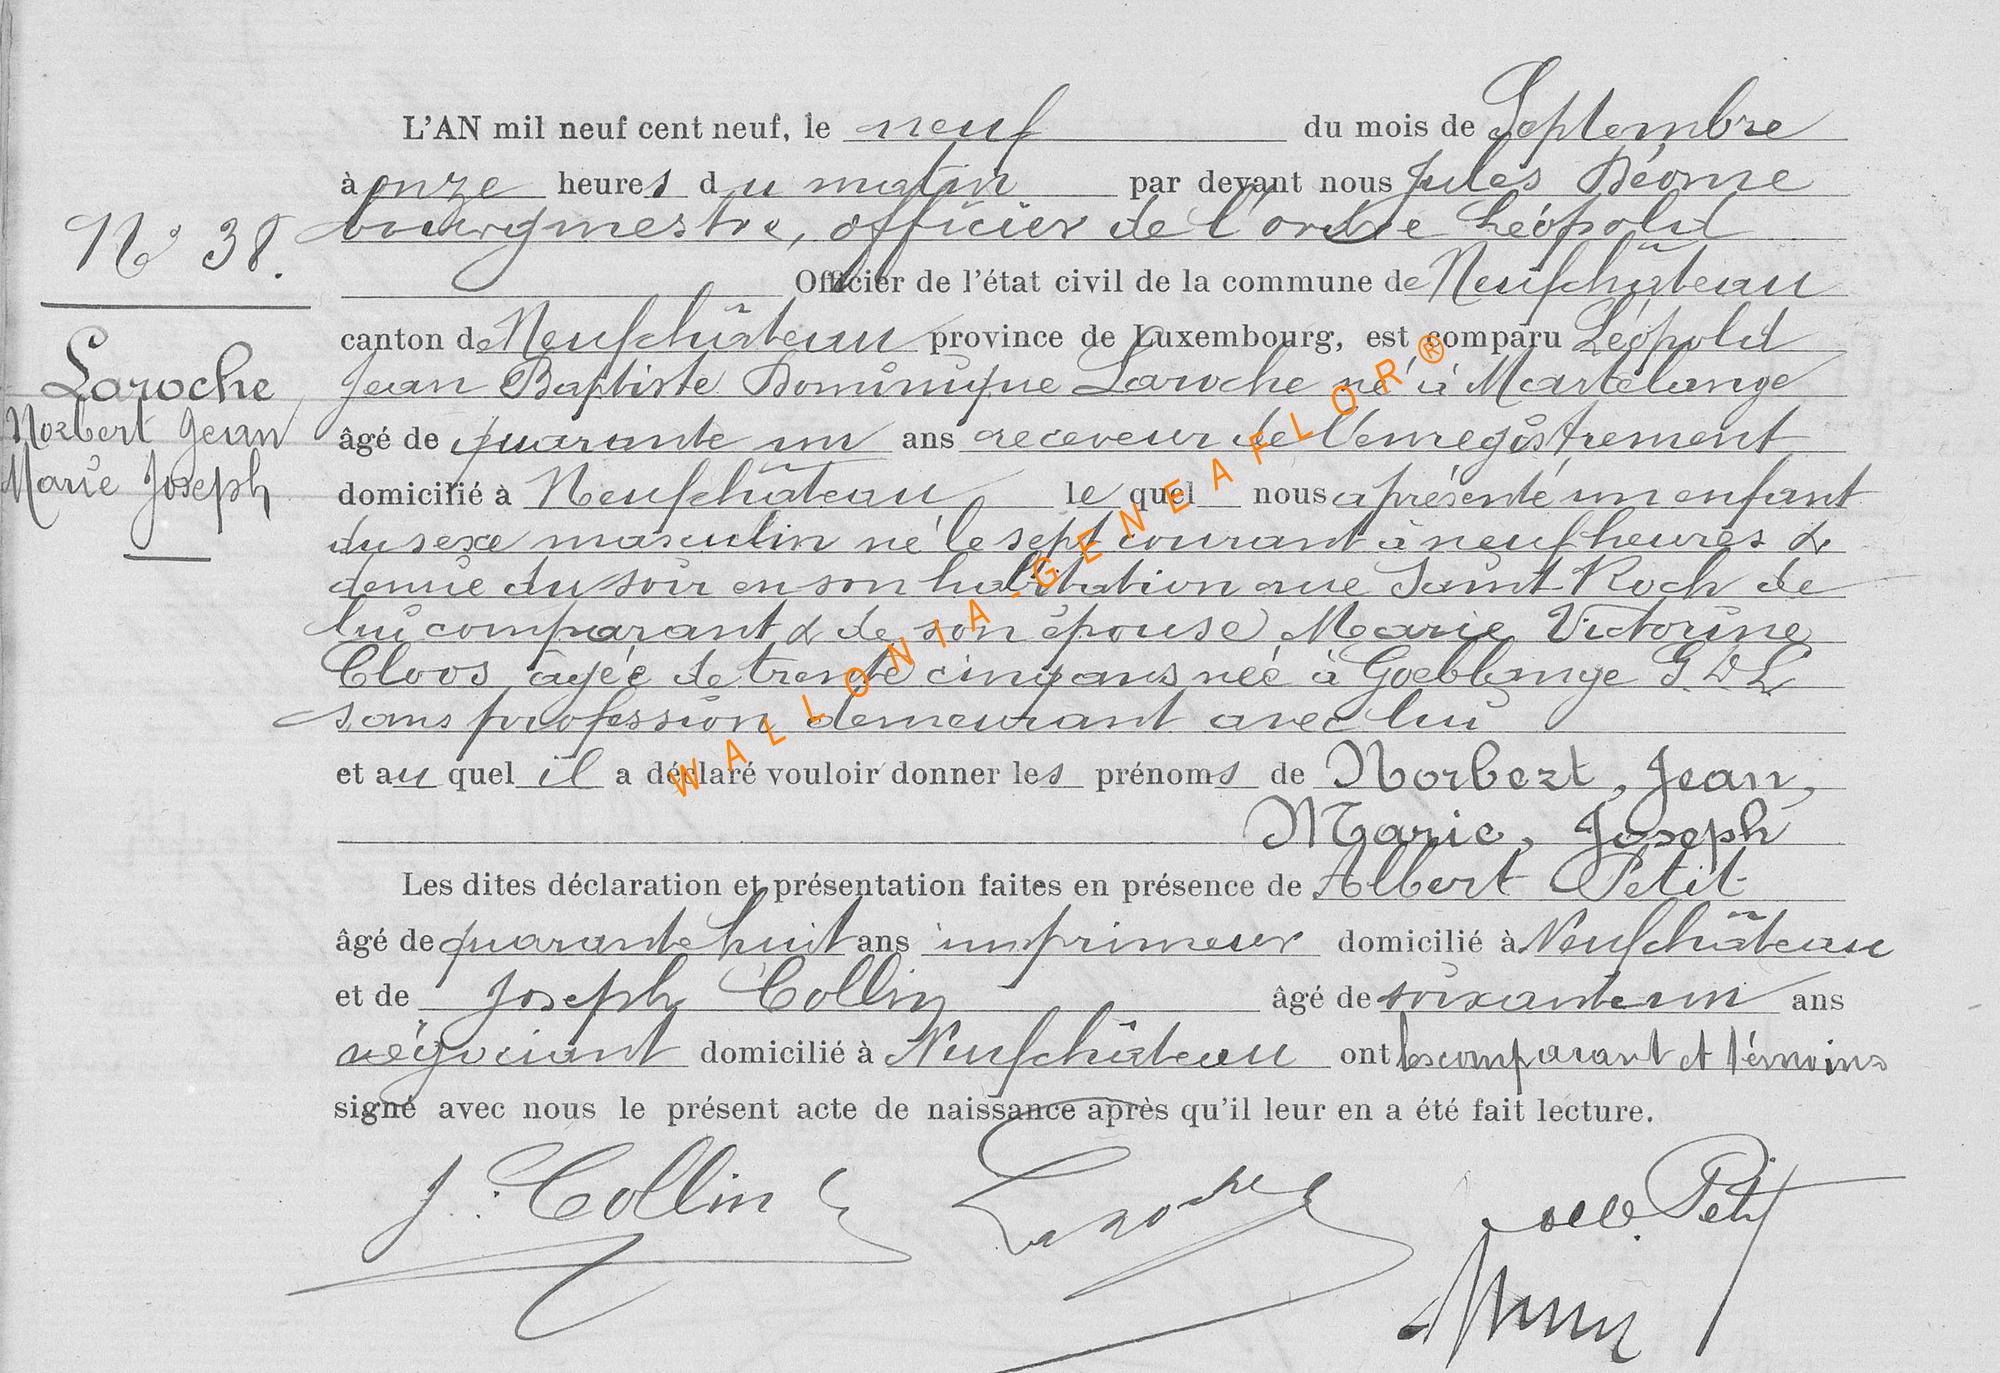 L'AN mil neuf cent neuf, le neuf du mois de Septembre
à onze heures du matin par devant nous Jules
bourgmestre, officier de l'ordre Léopold
Officier de l'état civil de la commune de Neufchâteau
canton de Neufchâteau province de Luxembourg, est comparu Léopold
Jean Baptiste Dominique Laroche né à Martelange
âgé de quarante un ans receveur de l'enregistrement
domicilié à Neufchâteau le quel nous a présenté un enfant
du sexe masculin né le sept courant à neuf heures &
demie du soir en son habitation rue Saint Roch de
lui comparant & de son épouse Marie Victorine
Cloos âgée de trente cinq ans née à Goeblange G. D. L
sans profession demeurant avec lui
et au quel il a déclaré vouloir donner les prénoms de Norbert, Jean,
Marie, Joseph
Les dites déclaration et présentation faites en présence de Albert Petit
âgé de quarante huit ans imprimeur domicilié à Neufchâteau
et de Joseph Collin âgé de soixante un ans
négociant domicilié à Neufchâteau ont les comparant et témoins
signé avec nous le présent acte de naissance après qu'il leur en a été fait lecture.
N° 38.
Laroche
Norbert Jean
Marie Joseph
J. Collin
Laroche
Petit
WALLONIA-GENEAFLOR®